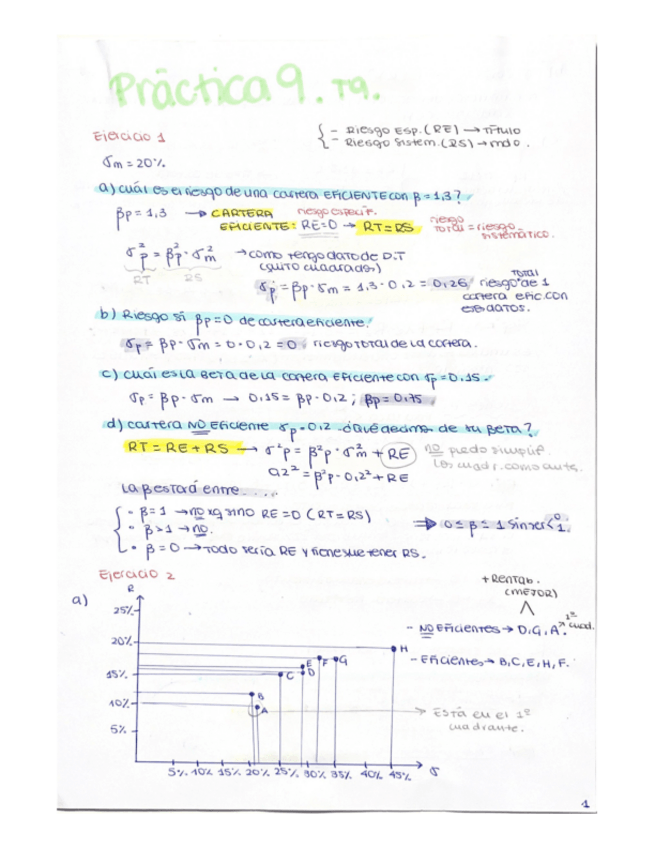 Práctica 9. T9.
Ejercicio 1
- Riesgo Esp. (RE) → Título
- Riesgo Sistem. (RS) → mdo.
σm = 20%
a) cuál es el riesgo de una cartera EFICIENTE con β = 1,3?
βp = 1,3 → CARTERA EFICIENTE: RE=0 → RT=RS
riesgo específ.
riesgo TOTAL = riesgo sistemático.
σ²p = β²p · σ²m → como tengo dato de D.T
RT RS (quito cuadrados)
σp = βp · σm = 1,3 · 0,2 = 0,26, riesgo TOTAL de 1 cartera efic. con esos datos.
b) Riesgo si βp = 0 de cartera eficiente.
σp = βp · σm = 0 · 0,2 = 0, riesgo total de la cartera.
c) cuál es la BETA de la cartera EFiciente con σp = 0,15.
σp = βp · σm → 0,15 = βp · 0,2 ; βp = 0,75
d) cartera NO Eficiente σp = 0,2 ¿qué decimos de su BETA?
RT = RE + RS → σ²p = β²p · σ²m + RE
NO puedo simplif. los cuadr. como ante.
0,2² = β²p · 0,2² + RE
La β estará entre....
- β = 1 → no xq sino RE = 0 (RT = RS)
- β > 1 → no.
⇒ 0 ≤ β ≤ 1
- β = 0 → Todo sería RE y tiene que tener RS.
Ejercicio 2
a)
R
+ Rentab. (MEJOR)
- NO Eficientes → D, G, A.
1º cuad.
- Eficientes → B, C, E, H, F.
25%
20%
15%
10%
5%
A
B
C
D
E
F
G
H
→ Está en el 1º cuadrante.
5% 10% 15% 20% 25% 30% 35% 40% 45% σ
1